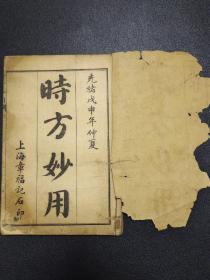 光緒戊申年仲夏
時方妙用
上海章福記石印